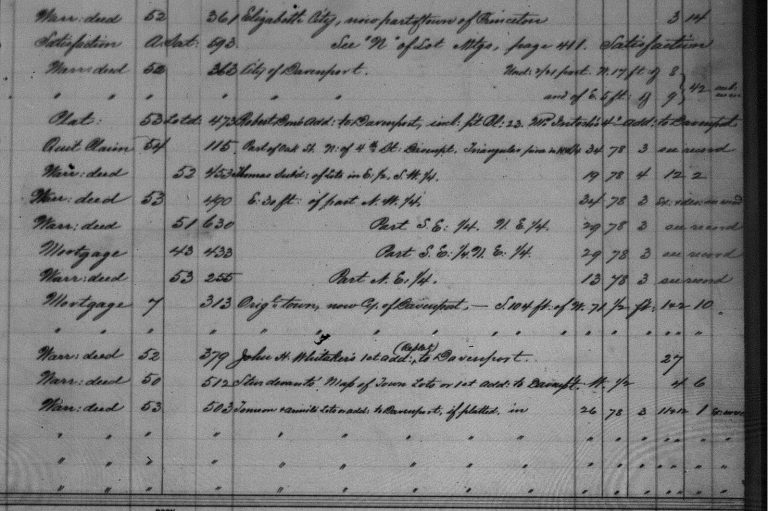 Warr: deed 52 361 Elizabeth City, now part of town of Princeton 3 14
Satisfaction A Sat. 593 See "N" of Lot Mtgs, page 411. Satisfaction
Warr: deed 52 363 City of Davenport. Und: 2/21 part N. 17 ft of 8
" " " " and of E. 5 ft: of 9 42
Plat: 53 Lotd: 473 Add: to Davenport, incl. 23. 4th Add: to Davenport
Quit Claim 54 115 Part of Oak St. N. of 4th St: Davenpt. Triangular piece in 34 78 3 see record
Warr: deed 53 453 Thomas Subd: of Lots in E. 1/2 S. W. 1/4. 19 78 4 12 2
Warr: deed 53 490 E. 30 ft: of part N. W. 1/4. 34 78 3
Warr: deed 51 630 Part S. E: 1/4. N. E. 1/4. 29 78 3 see record
Mortgage 43 433 Part S. E: 1/4 N. E. 1/4. 29 78 3 see record
Warr: deed 53 255 Part N. E. 1/4. 13 78 3 see record
Mortgage 7 313 Orig: town, now Cy. of Davenport, — S. 104 ft: of W. 71 1/2 ft: 142 10
" " " " " " " " " " "
Warr: deed 52 379 John H. Whitaker's 1st add: (Replat) to Davenport. 27
Warr: deed 50 512 Map of Town Lots or 1st Add: to Davenpt. W. 1/2 4 6
Warr: deed 53 503 Lots or add: to Davenport, if platted, in 26 78 3 1
" " " " " " " " " " " "
" " " " " " " " " " " "
" " " " " " " " " " " "